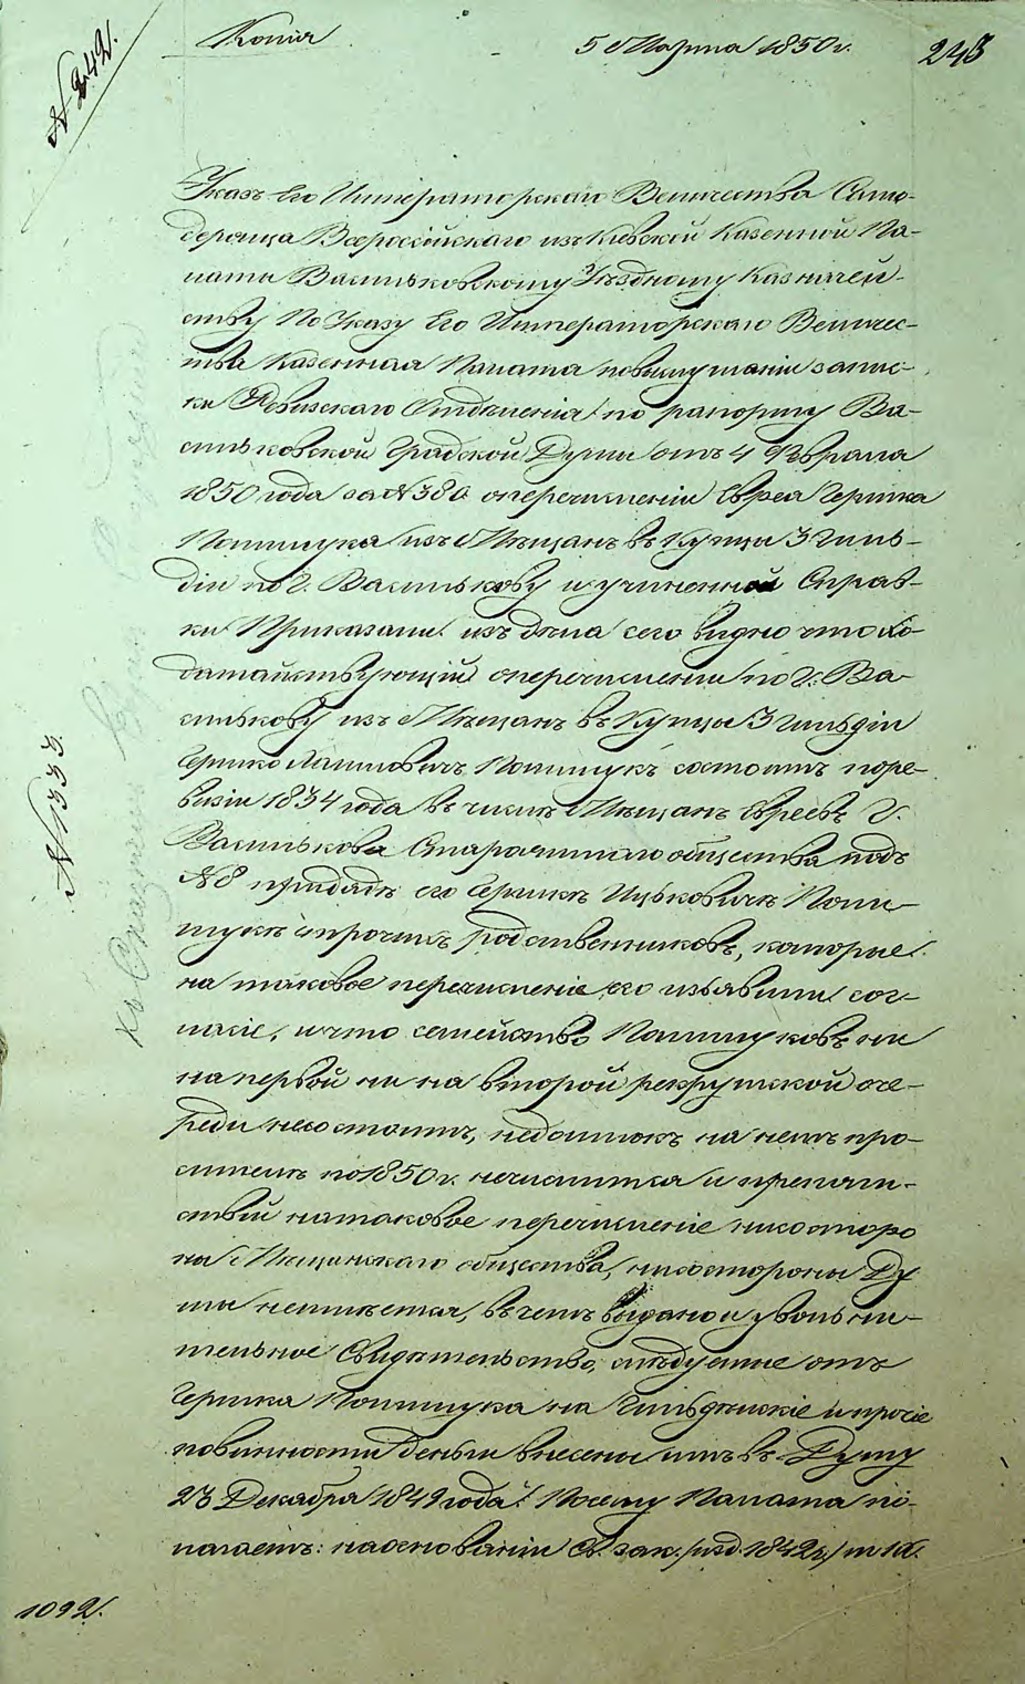 № 242.
Копия
5 Марта 1850 г.
243
Указъ Его Императорскаго Величества Само-
держца Всероссійскаго изъ Кіевской Казенной Па-
латы Васильковскому Уѣздному Казначей-
ству По Указу Его Императорскаго Величес-
тва Казенная Палата по выслушаніи запис-
ки Ревизскаго Отдѣленія по рапорту Ва-
сильковской Градской Думы отъ 4 Февраля
1850 года за № 380 о перечисленіи Еврея Гершка
Полищука изъ Мѣщанъ въ Купцы 3 Гиль-
діи по г. Василькову и учиненной Справ-
ки Приказали: изъ дѣла сего видно что Хо-
датайствующій о перечисленіи по г. Ва-
силькову изъ Мѣщанъ въ Купцы 3 гильдіи
Гершко Полищукъ состоитъ по ре-
визіи 1834 года въ числѣ Мѣщанъ Евреевъ г.
Василькова Старожитнаго общества подъ
№ 8 при дядѣ его Гершкѣ Ицьковичѣ Поли-
щукѣ и прочихъ родственниковъ, которые
на таковое перечисленіе его изъявили сог-
ласіе, и что семейство Полищуковъ ни
на первой ни на второй рекрутской оче-
реди не состоитъ, недоимокъ на немъ про-
сителѣ по 1850 г. не числится и препят-
ствій на таковое перечисленіе ни со сторо
ны Мѣщанскаго общества, ни со стороны Ду
мы не имѣется, въ чемъ выдано и увольни-
тельное Свидѣтельство, слѣдуемые отъ
Гершка Полищука на Гильдѣйскіе и прочіе
повинности деньги внесены имъ въ Думу
23 Декабря 1849 года. Почему Палата по-
лагаетъ: на основаніи Св. зак. /изд. 1842 г./ т. IX.
№ 1333
1092.